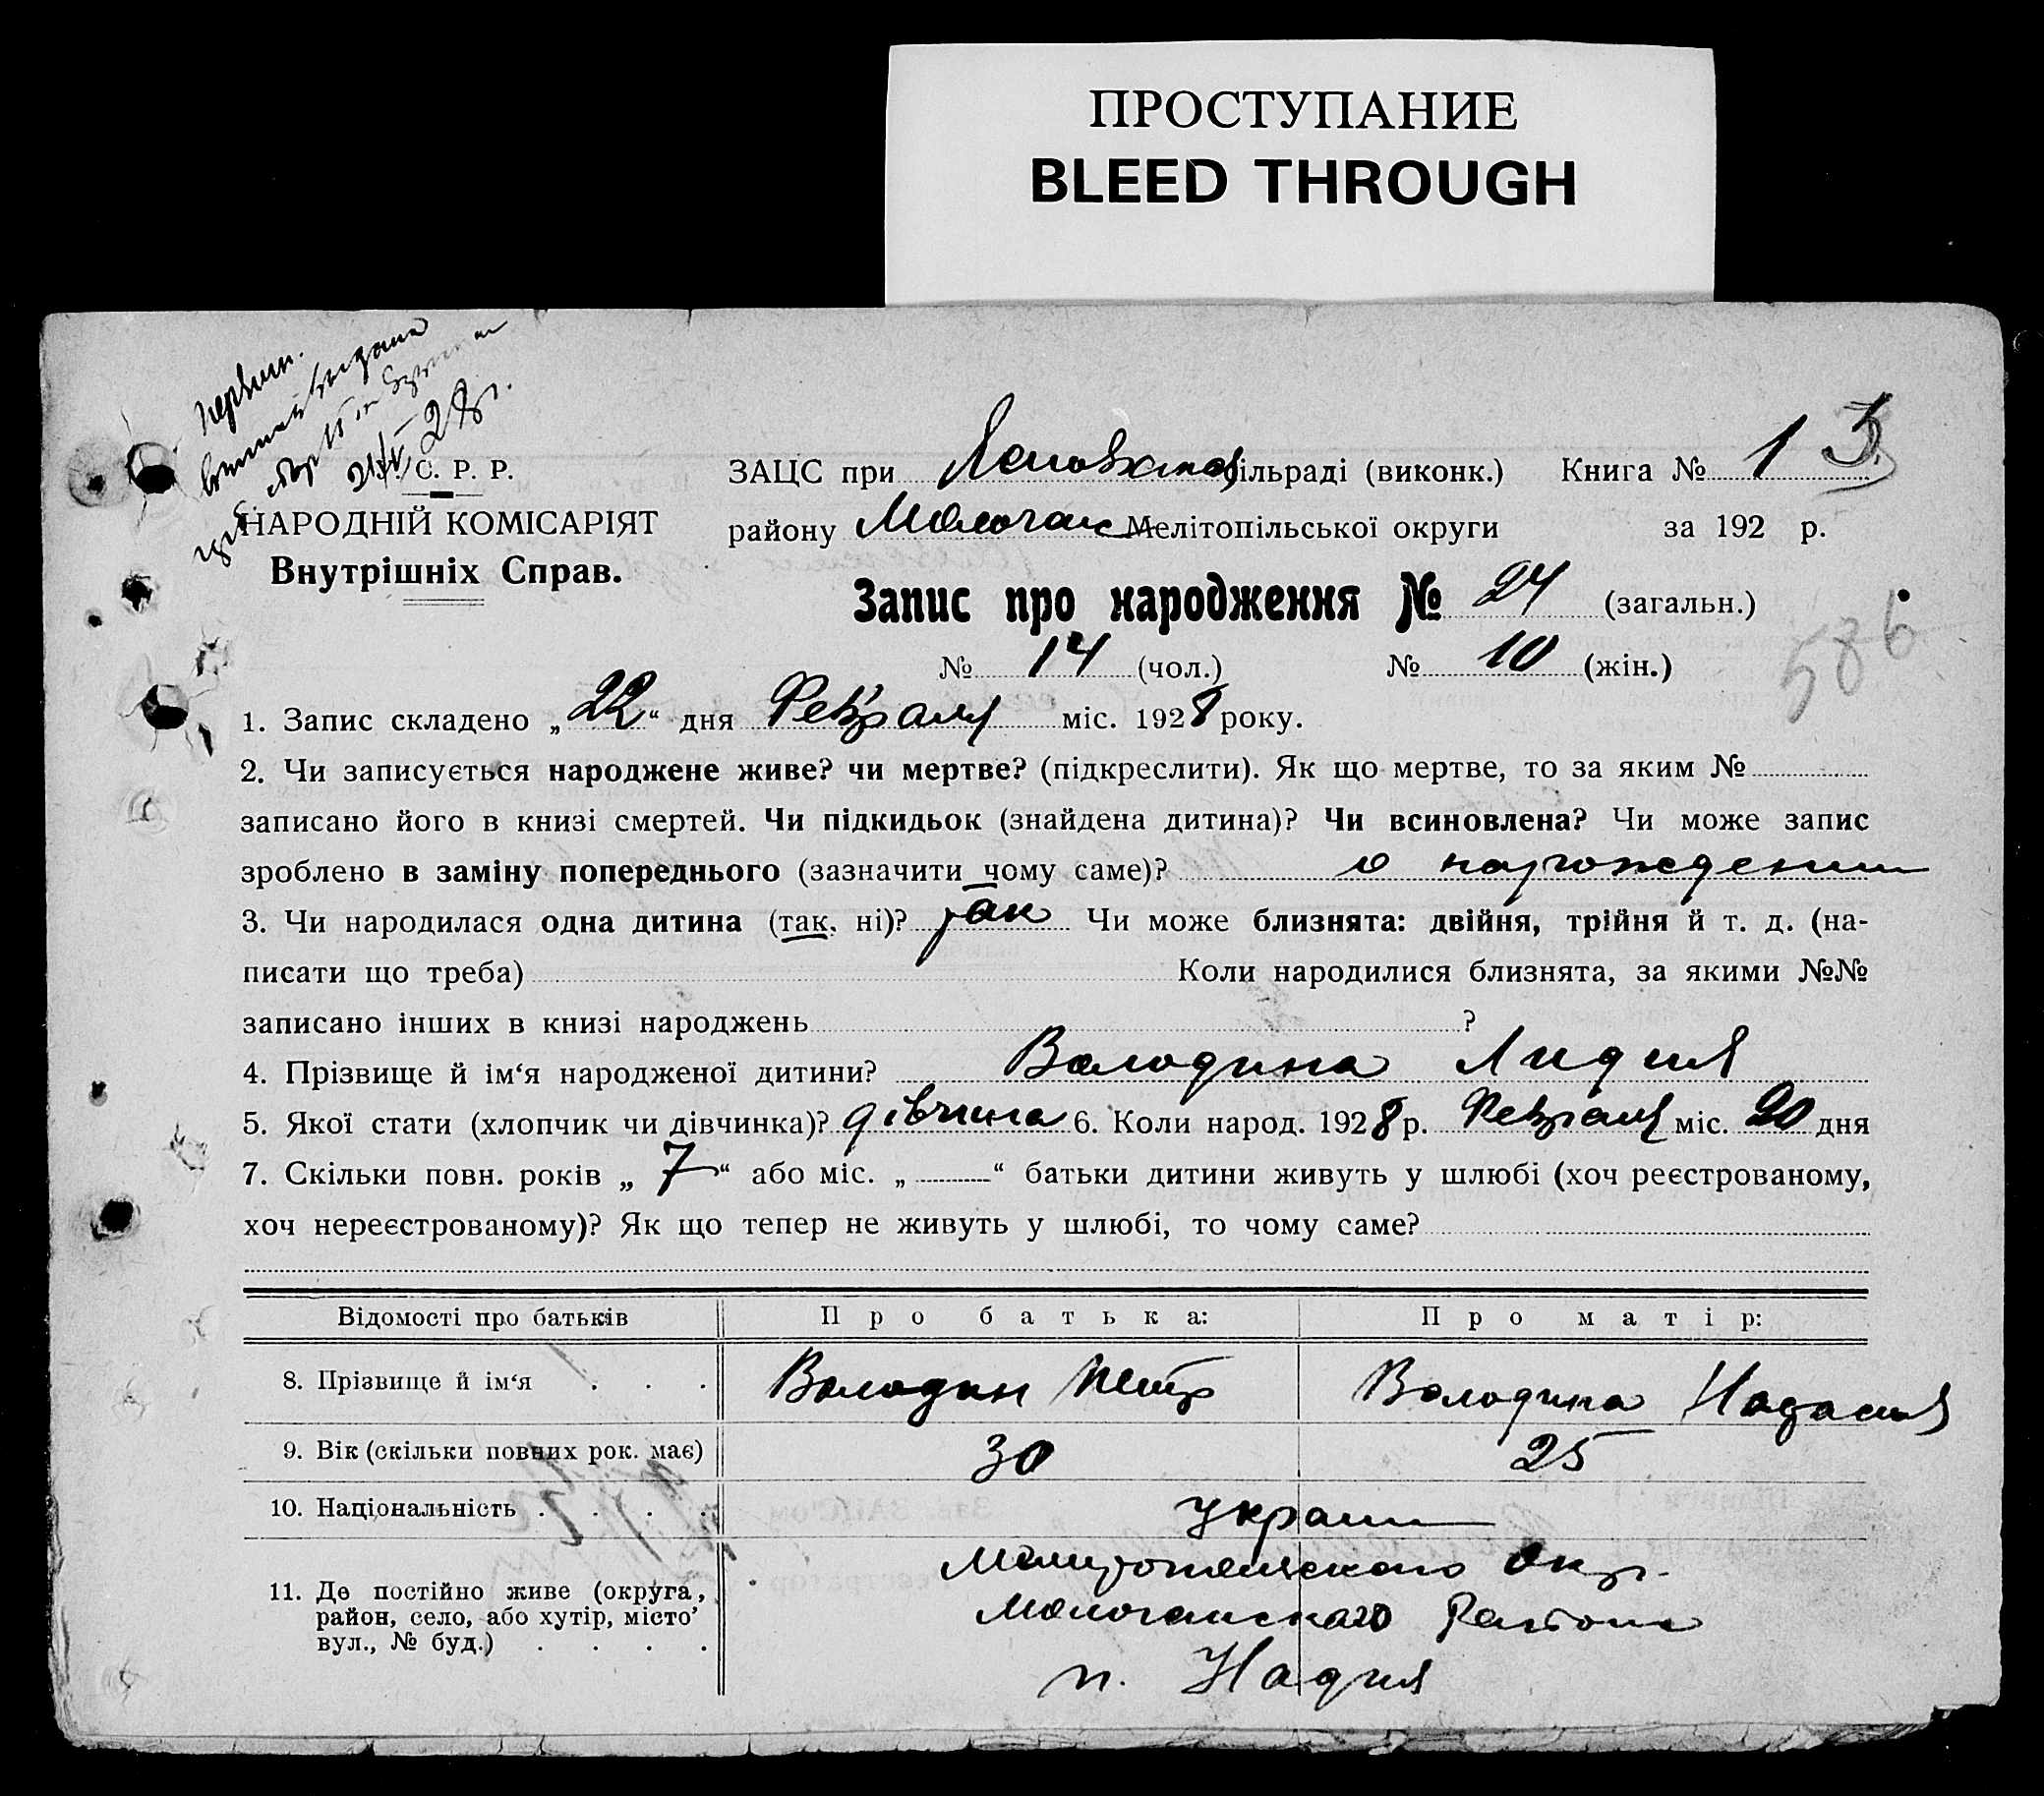 ПРОСТУПАНИЕ
BLEED THROUGH
С. Р. Р.
НАРОДНІЙ КОМІСАРІЯТ
Внутрішніх Справ.
ЗАЦС при сільраді (виконк.) Книга № 1 3
району Молочанс Мелітопільської округи за 192 р.
Запис про народження № 24 (загальн.)
586
№ 14 (чол.) № 10 (жін.)
1. Запис складено „22“ дня Февраля міс. 1928 року.
2. Чи записується народжене живе? чи мертве? (підкреслити). Як що мертве, то за яким №
записано його в книзі смертей. Чи підкидьок (знайдена дитина)? Чи всиновлена? Чи може запис
зроблено в заміну попереднього (зазначити чому саме)? о нарождении
3. Чи народилася одна дитина (так, ні)? так Чи може близнята: двійня, трійня й т. д. (на-
писати що треба) Коли народилися близнята, за якими №№
записано інших в книзі народжень ?
4. Прізвище й ім‘я народженої дитини? Володина Лидия
5. Якої стати (хлопчик чи дівчинка)? дівчина 6. Коли народ. 1928 р. Февраля міс. 20 дня
7. Скільки повн. років „7“ або міс. „ “ батьки дитини живуть у шлюбі (хоч реєстрованому,
хоч нереєстрованому)? Як що тепер не живуть у шлюбі, то чому саме?
Відомості про батьків Про батька: Про матір:
8. Прізвище й ім‘я . . . Володин Петр Володина
9. Вік (скільки повних рок. має) 30 25
10. Національність . . . . Украин
11. Де постійно живе (округа, район, село, або хутір, місто’ вул., № буд.) . . . .
Мелитопольского Окр.
Молочанского Района
п. Надия